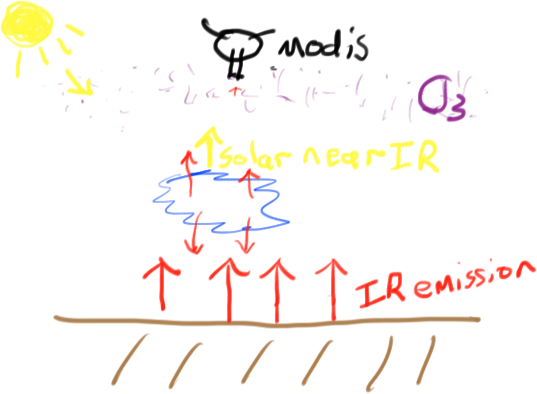 modis
O3
solar near IR
IR emission